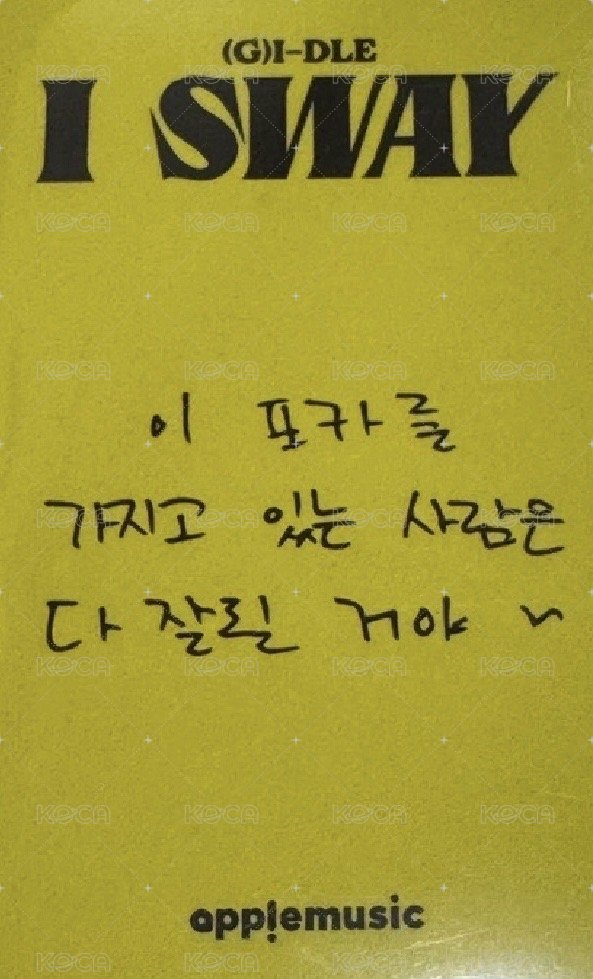 (G)I-DLE
KOCA KOCA KOCA KOCA
I SWAY
KOCA KOCA KOCA KOCA
KOCA KOCA KOCA KOCA
이 포카를
가지고 있는 사람은
KOCA KOCA KOCA KOCA
다 잘될 거야 ~
KOCA KOCA KOCA KOCA
KOCA KOCA KOCA KOCA
applemusic
KOCA KOCA KOCA KOCA